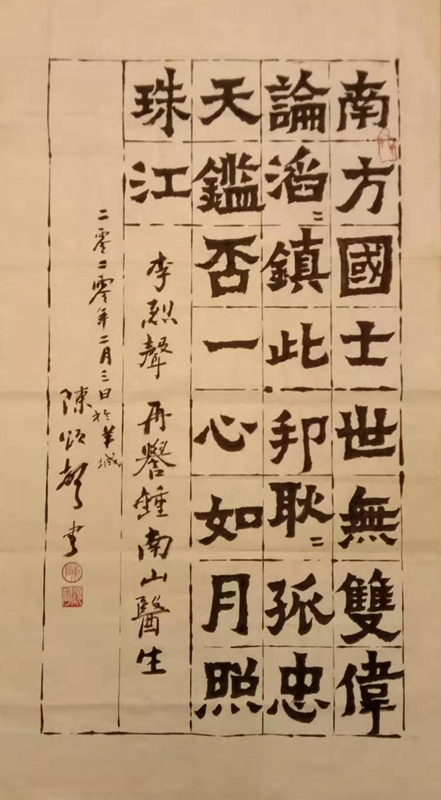 南方國士世無雙偉
論滔〻鎮此邦耿〻孤忠
天鑑否一心如月照
珠江
李烈聲 再譽鍾南山醫生
二零二零年二月三日於羊城
陳頌聲書